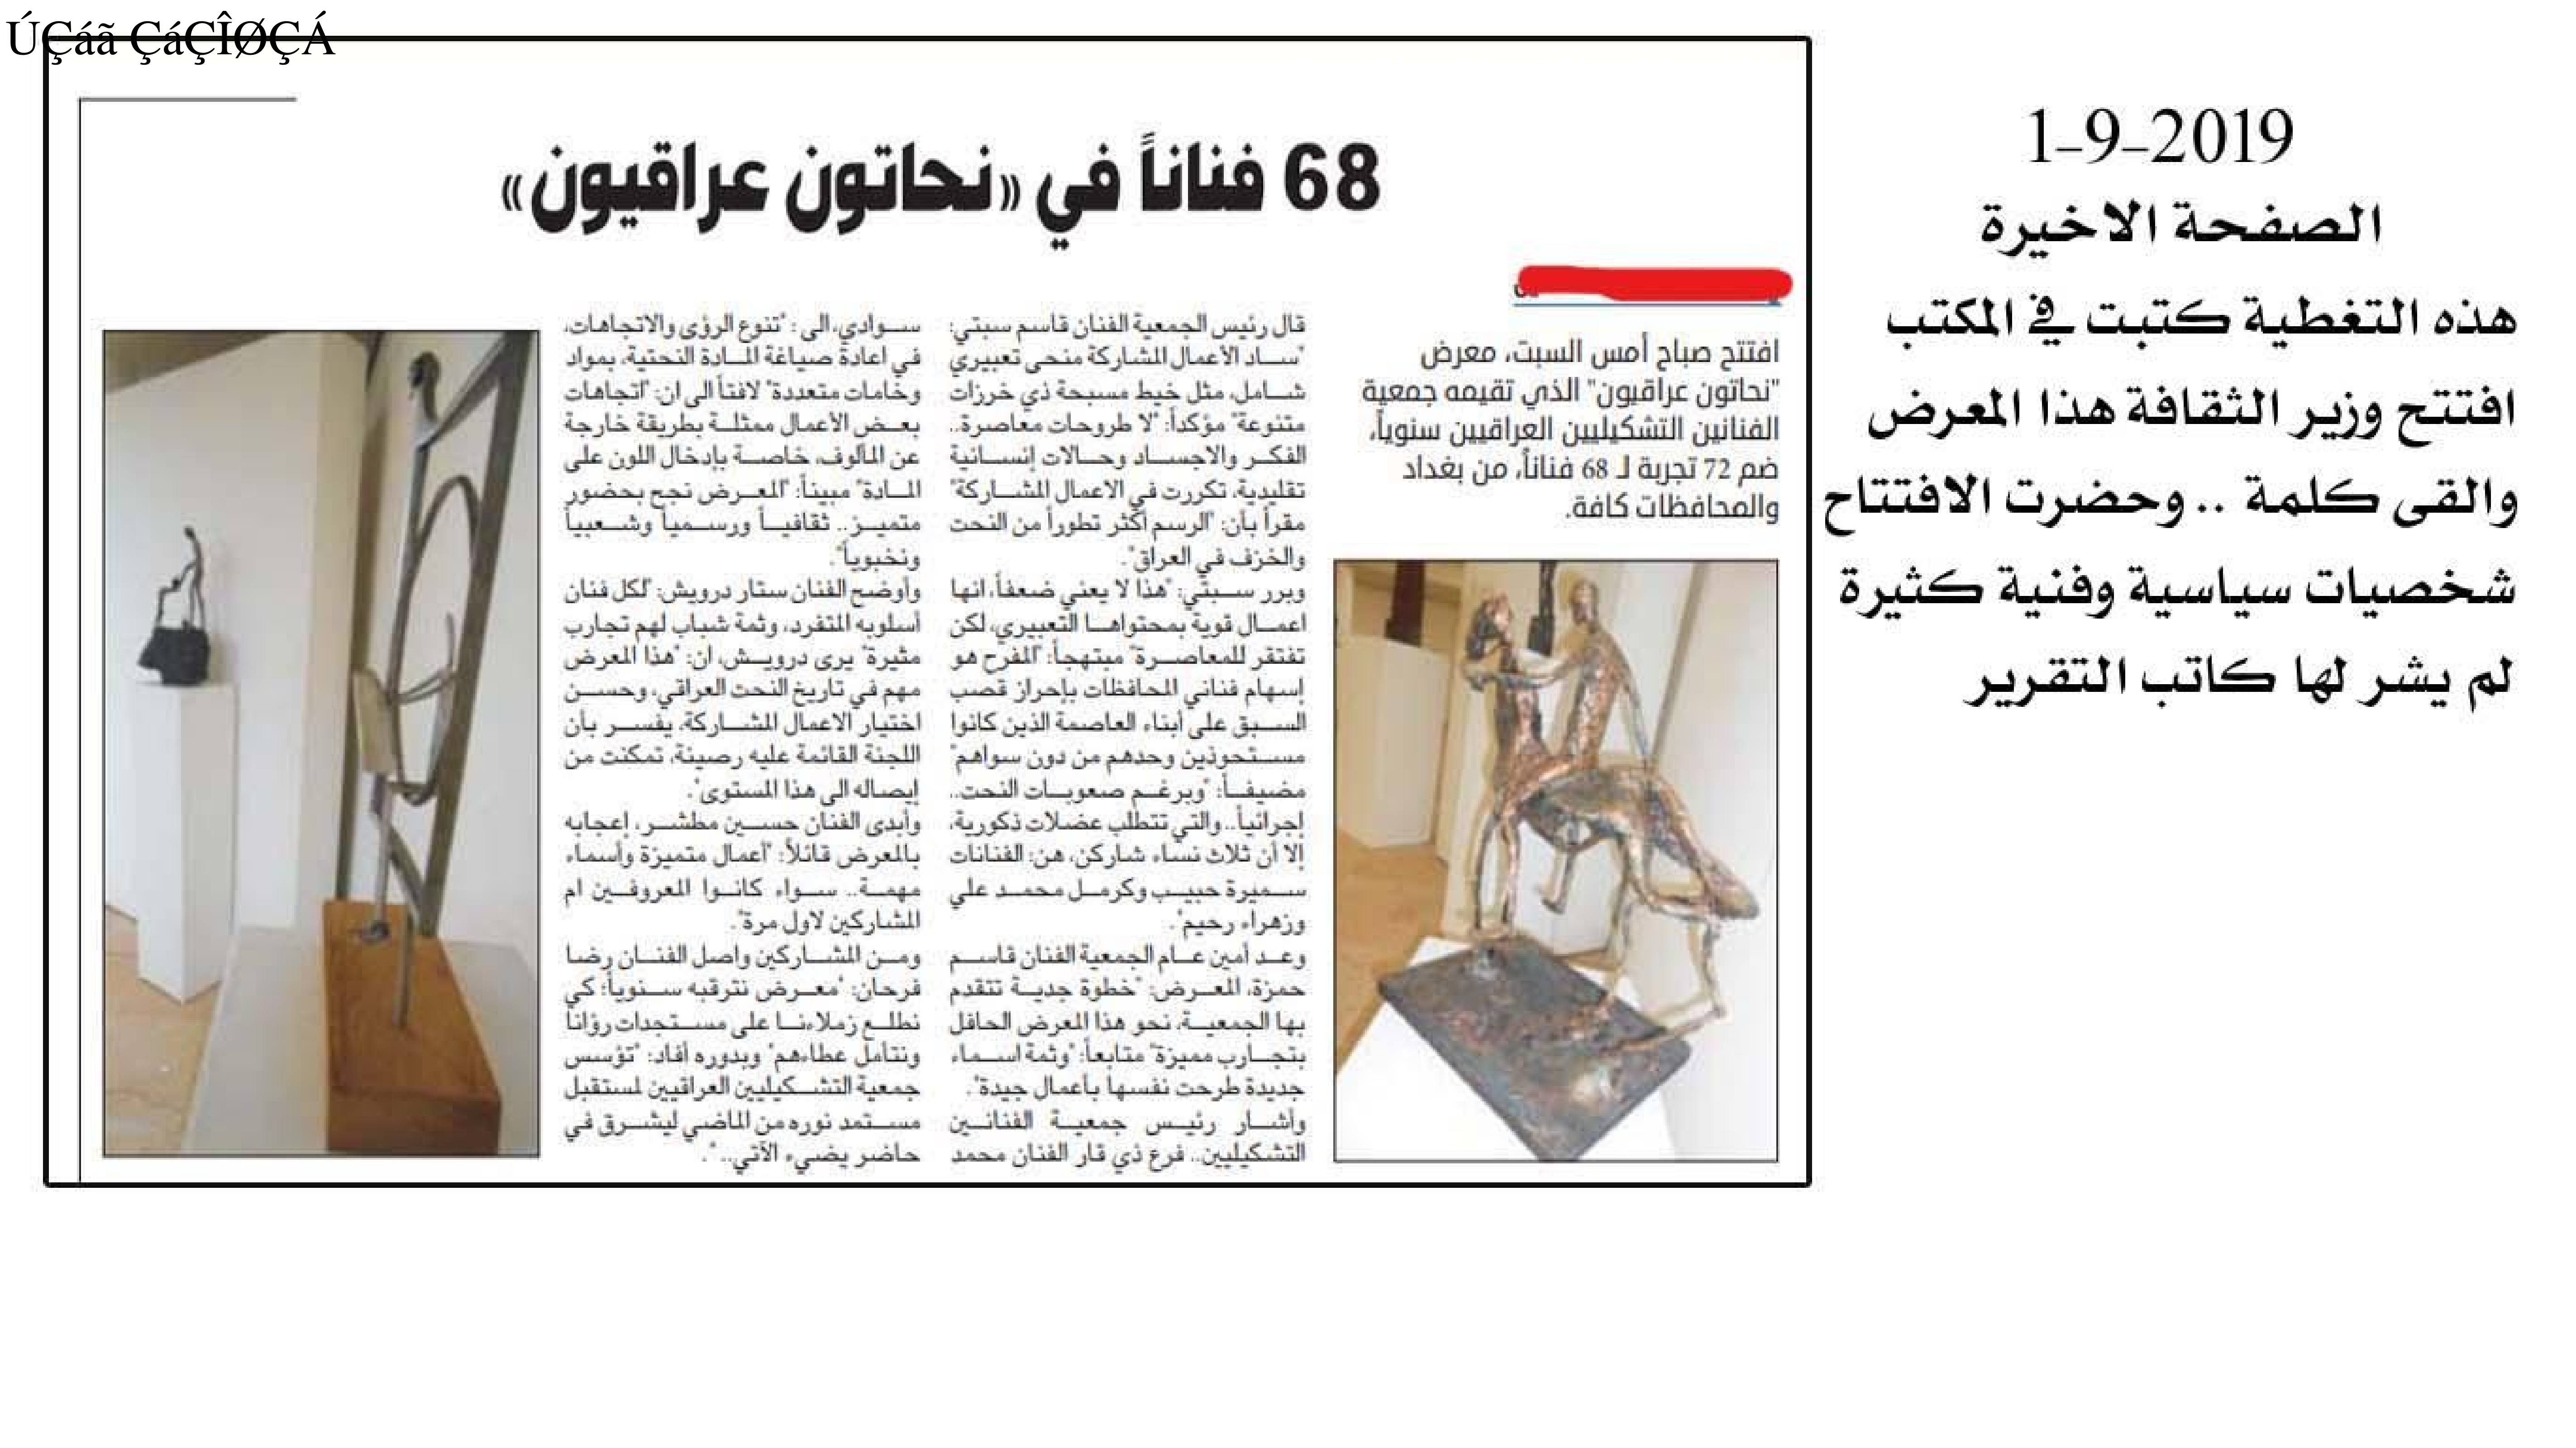 ÚÇáã ÇáÇÎØÇÁ
1-9-2019
الصفحة الاخيرة
هذه التغطية كتبت في المكتب
افتتح وزير الثقافة هذا المعرض
والقى كلمة .. وحضرت الافتتاح
شخصيات سياسية وفنية كثيرة
لم يشر لها كاتب التقرير
68 فناناً في «نحاتون عراقيون»
افتتح صباح أمس السبت، معرض
"نحاتون عراقيون" الذي تقيمه جمعية
الفنانين التشكيليين العراقيين سنوياً،
ضم 72 تجربة لـ 68 فناناً، من بغداد
والمحافظات كافة.
قال رئيس الجمعية الفنان قاسم سبتي:
"ساد الأعمال المشاركة منحى تعبيري
شامل، مثل خيط مسبحة ذي خرزات
متنوعة" مؤكداً: "لا طروحات معاصرة..
الفكر والاجساد وحالات إنسانية
تقليدية، تكررت في الاعمال المشاركة"
مقراً بأن: "الرسم أكثر تطوراً من النحت
والخزف في العراق".
وبرر سبتي: "هذا لا يعني ضعفاً، انها
اعمال قوية بمحتواها التعبيري، لكن
تفتقر للمعاصرة" مبتهجاً: "المفرح هو
إسهام فناني المحافظات بإحراز قصب
السبق على أبناء العاصمة الذين كانوا
مستحوذين وحدهم من دون سواهم"
مضيفاً: "وبرغم صعوبات النحت..
إجرائياً.. والتي تتطلب عضلات ذكورية،
إلا أن ثلاث نساء شاركن، هن: الفنانات
سميرة حبيب وكرمل محمد علي
وزهراء رحيم".
وعد أمين عام الجمعية الفنان قاسم
حمزة، المعرض: "خطوة جدية تتقدم
بها الجمعية، نحو هذا المعرض الحافل
بتجارب مميزة" متابعاً: "وثمة اسماء
جديدة طرحت نفسها بأعمال جيدة".
وأشار رئيس جمعية الفنانين
التشكيليين.. فرع ذي قار الفنان محمد
سوادي، الى: "تنوع الرؤى والاتجاهات،
في اعادة صياغة المادة النحتية، بمواد
وخامات متعددة" لافتاً الى ان: "اتجاهات
بعض الأعمال ممثلة بطريقة خارجة
عن المألوف، خاصة بإدخال اللون على
المادة" مبيناً: "المعرض نجح بحضور
متميز.. ثقافياً ورسمياً وشعبياً
ونخبوياً".
وأوضح الفنان ستار درويش: "لكل فنان
أسلوبه المتفرد، وثمة شباب لهم تجارب
مثيرة" يرى درويش، ان: "هذا المعرض
مهم في تاريخ النحت العراقي، وحسن
اختيار الاعمال المشاركة، يفسر بأن
اللجنة القائمة عليه رصينة، تمكنت من
إيصاله الى هذا المستوى".
وأبدى الفنان حسين مطشر، إعجابه
بالمعرض قائلاً: "أعمال متميزة وأسماء
مهمة.. سواء كانوا المعروفين ام
المشاركين لاول مرة".
ومن المشاركين واصل الفنان رضا
فرحان: "معرض نترقبه سنوياً؛ كي
نطلع زملاءنا على مستجدات رؤانا
ونتأمل عطاءهم" وبدوره أفاد: "تؤسس
جمعية التشكيليين العراقيين لمستقبل
مستمد نوره من الماضي ليشرق في
حاضر يضيء الآتي..".